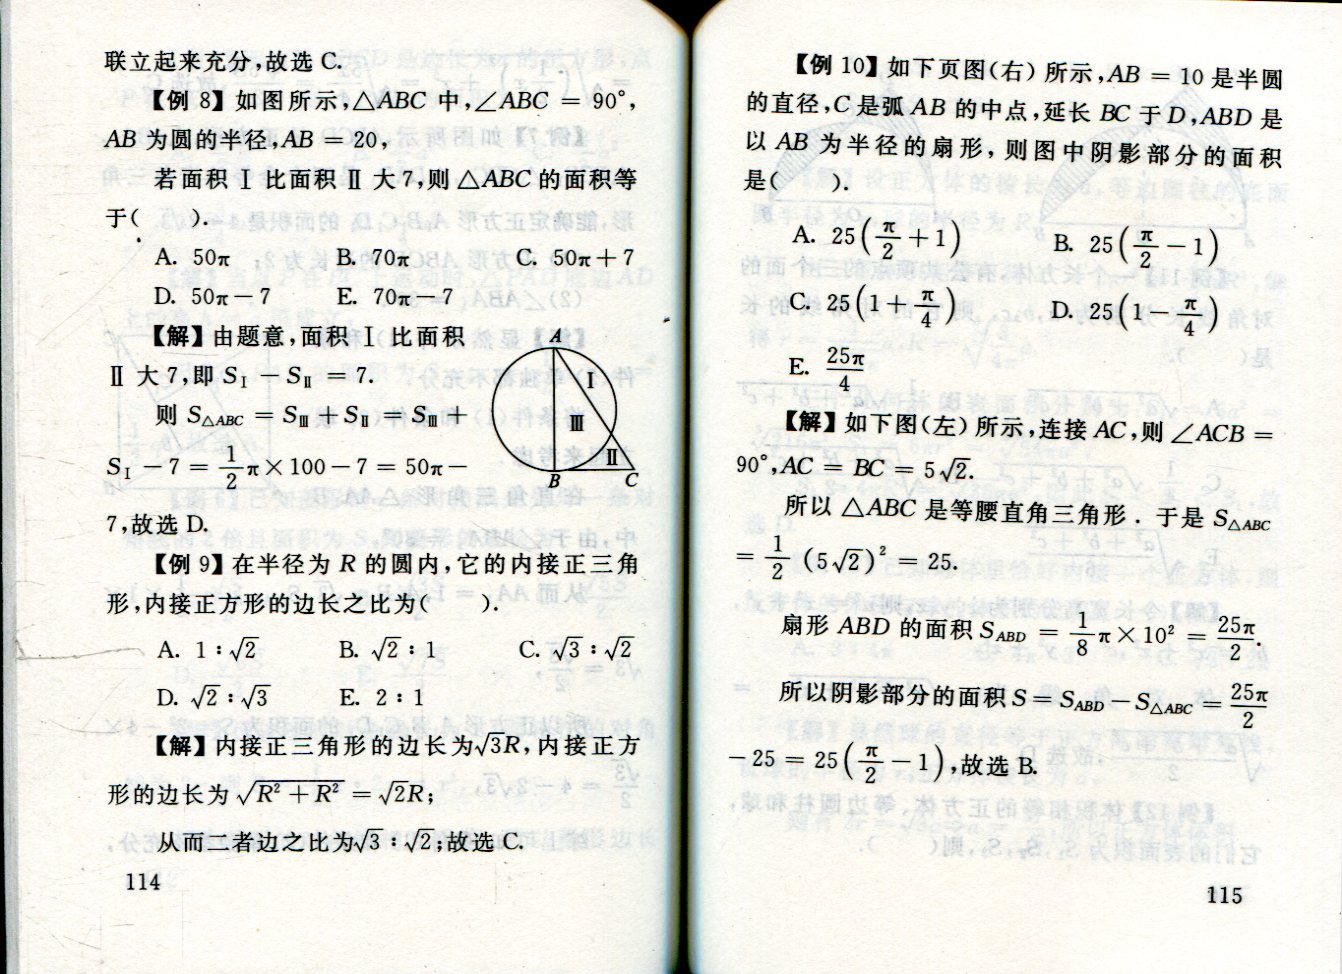 联立起来充分,故选 C.
【例 8】如图所示,△ABC 中,∠ABC = 90°,
AB 为圆的半径,AB = 20,
若面积 Ⅰ 比面积 Ⅱ 大 7,则 △ABC 的面积等
于(　　).
A. 50π　B. 70π　C. 50π + 7
D. 50π − 7　E. 70π − 7
【解】由题意,面积 Ⅰ 比面积
Ⅱ 大 7,即 SⅠ − SⅡ = 7.
则 S△ABC = SⅢ + SⅡ = SⅢ +
SⅠ − 7 = 1/2 π × 100 − 7 = 50π −
7,故选 D.
A
Ⅰ
Ⅲ
Ⅱ
B C
【例 9】在半径为 R 的圆内,它的内接正三角
形,内接正方形的边长之比为(　　).
A. 1 : √2　B. √2 : 1　C. √3 : √2
D. √2 : √3　E. 2 : 1
【解】内接正三角形的边长为√3R,内接正方
形的边长为 √(R² + R²) = √2R;
从而二者边之比为√3 : √2;故选 C.
114
【例 10】如下页图(右)所示,AB = 10 是半圆
的直径,C 是弧 AB 的中点,延长 BC 于 D,ABD 是
以 AB 为半径的扇形,则图中阴影部分的面积
是(　　).
A. 25(π/2 + 1)　B. 25(π/2 − 1)
C. 25(1 + π/4)　D. 25(1 − π/4)
E. 25π/4
【解】如下图(左)所示,连接 AC,则 ∠ACB =
90°,AC = BC = 5√2.
所以 △ABC 是等腰直角三角形. 于是 S△ABC
= 1/2 (5√2)² = 25.
扇形 ABD 的面积 SABD = 1/8 π × 10² = 25π/2.
所以阴影部分的面积 S = SABD − S△ABC = 25π/2
− 25 = 25(π/2 − 1),故选 B.
115